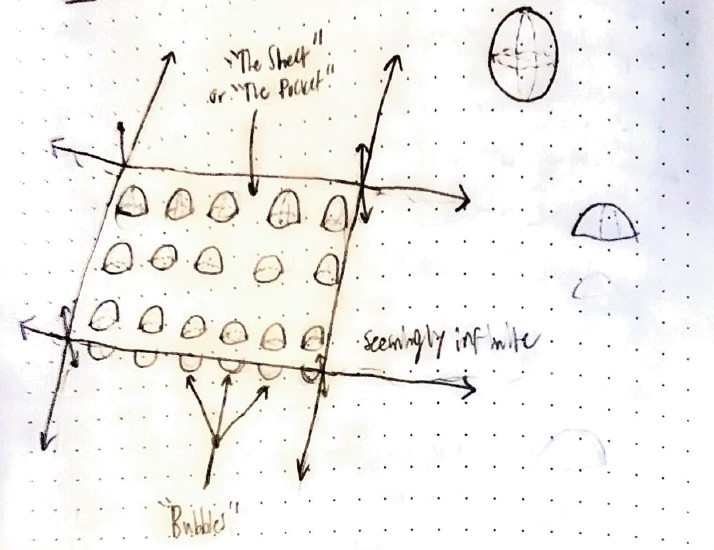 "The Shelf"
or "The Pocket"
seemingly infinite
"Bubbles"